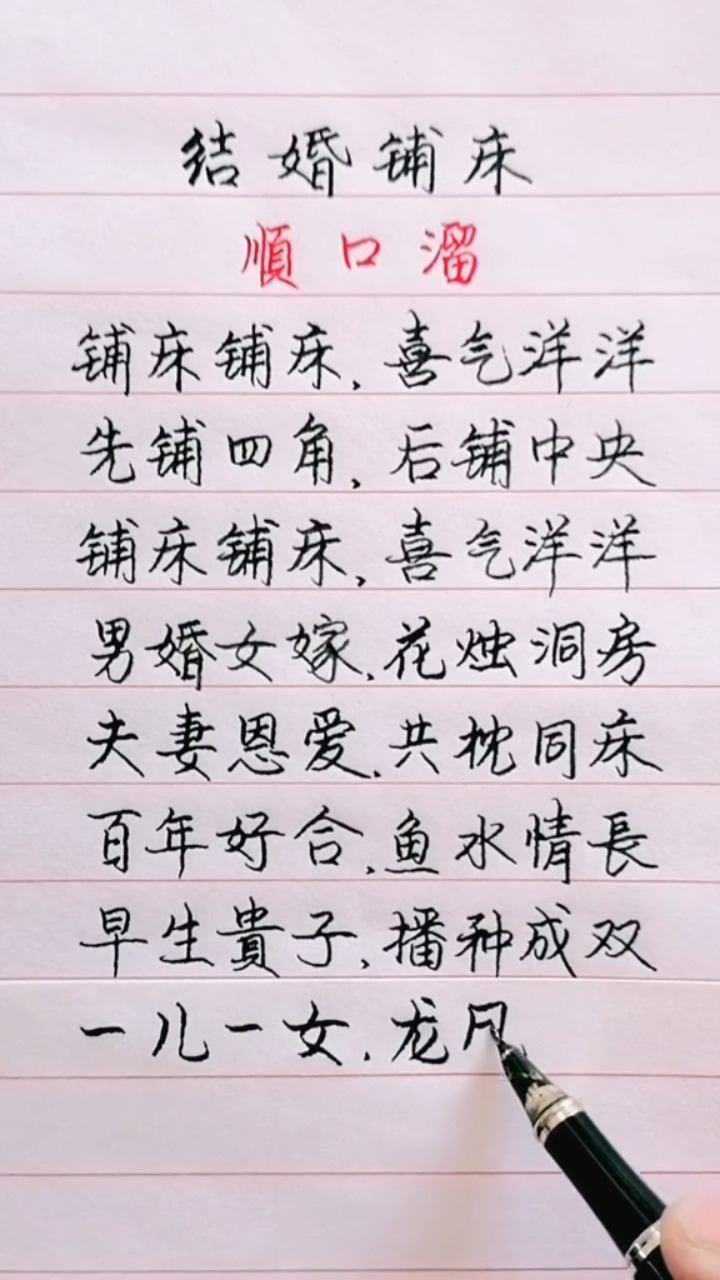 结婚铺床
順口溜
铺床铺床,喜气洋洋
先铺四角,后铺中央
铺床铺床,喜气洋洋
男婚女嫁,花烛洞房
夫妻恩爱,共枕同床
百年好合,鱼水情長
早生貴子,播种成双
一儿一女,龙